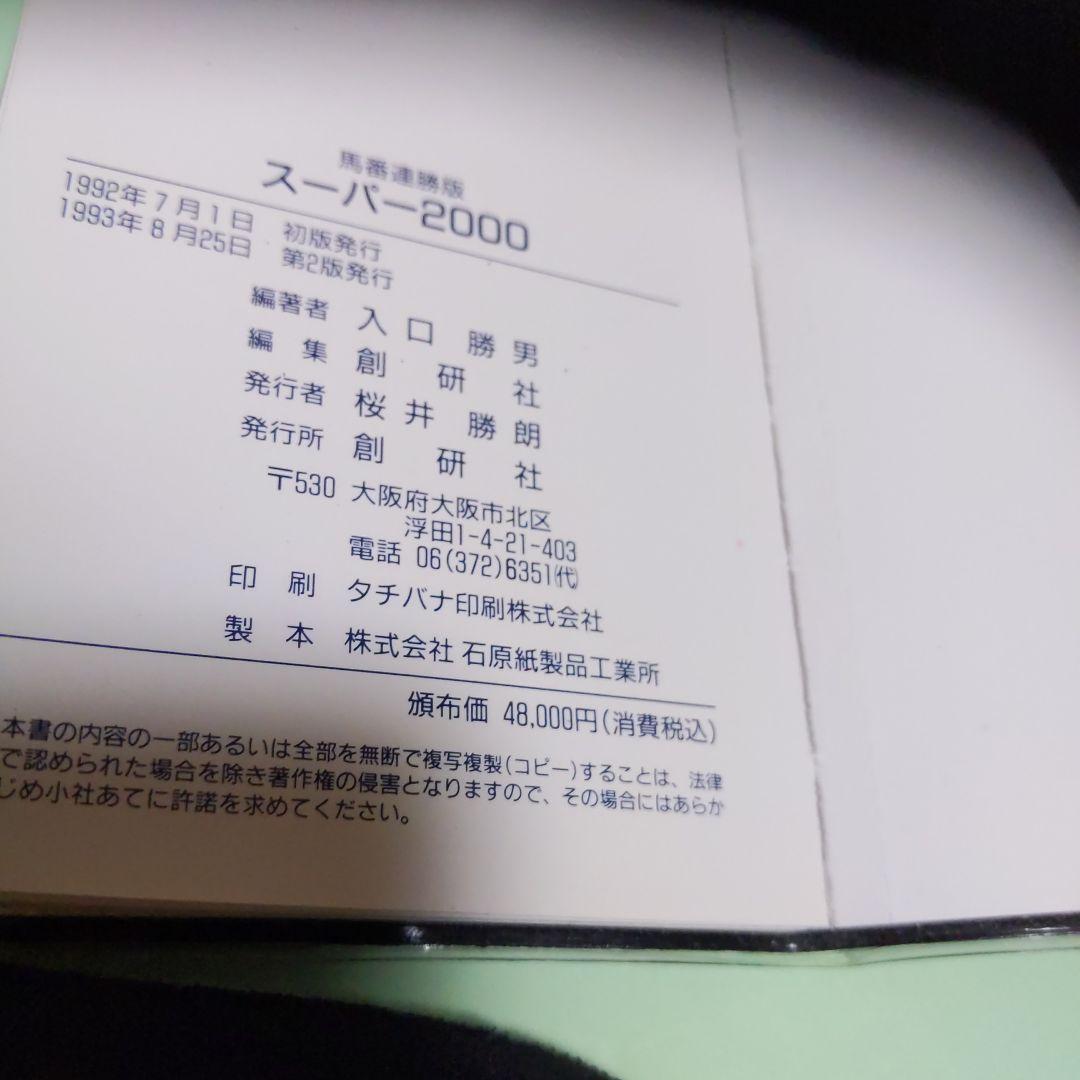 馬番連勝版
スーパー2000
1992年7月1日 初版発行
1993年8月25日 第2版発行
編著者 入口勝男
編集 創研社
発行者 桜井勝朗
発行所 創研社
〒530 大阪府大阪市北区
浮田1-4-21-403
電話 06(372)6351(代)
印刷 タチバナ印刷株式会社
製本 株式会社 石原紙製品工業所
頒布価 48,000円(消費税込)
本書の内容の一部あるいは全部を無断で複写複製(コピー)することは、法律
で認められた場合を除き著作権の侵害となりますので、その場合にはあらか
じめ小社あてに許諾を求めてください。